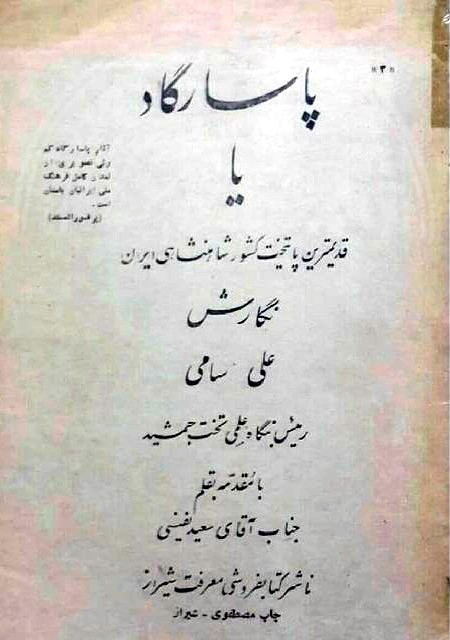 «۳»
پاسارگاد
یا
آثار پاسارگاد کم
ولی تصویری از
تمدن کامل فرهنگ
ملی ایرانیان باستان
است.
(پرفسور المستد)
قدیمترین پایتخت کشور شاهنشاهی ایران
نگارش
علی سامی
رئیس بنگاه علمی تخت جمشید
با مقدمه بقلم
جناب آقای سعید نفیسی
ناشر کتابفروشی معرفت شیراز
چاپ مصطفوی - شیراز